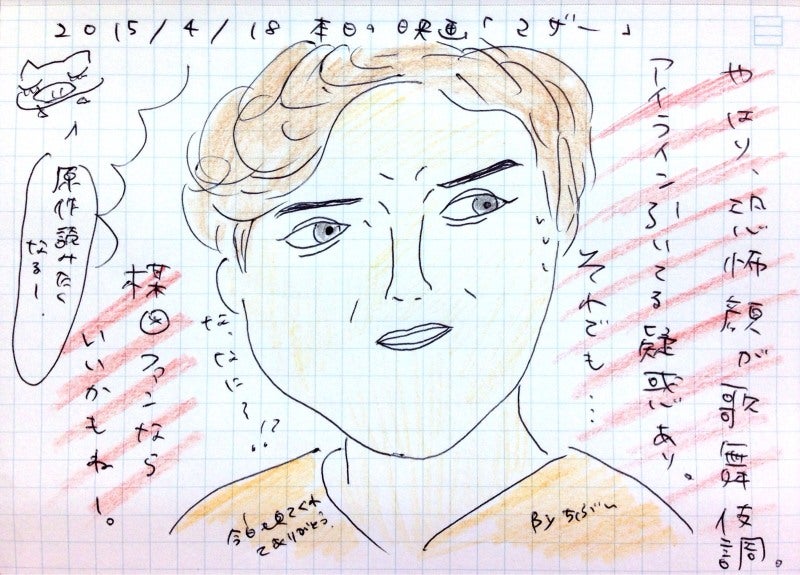 2015/4/18 本日の映画「マザー」
やはり、恐怖顔が歌舞伎調。
アイライン引いてる疑惑あり。
それでも…
な、なに〜!?
楳図ファンなら
いいかもねー。
原作読みたく
なるー!
今日も見てくれ
てありがとう。
By